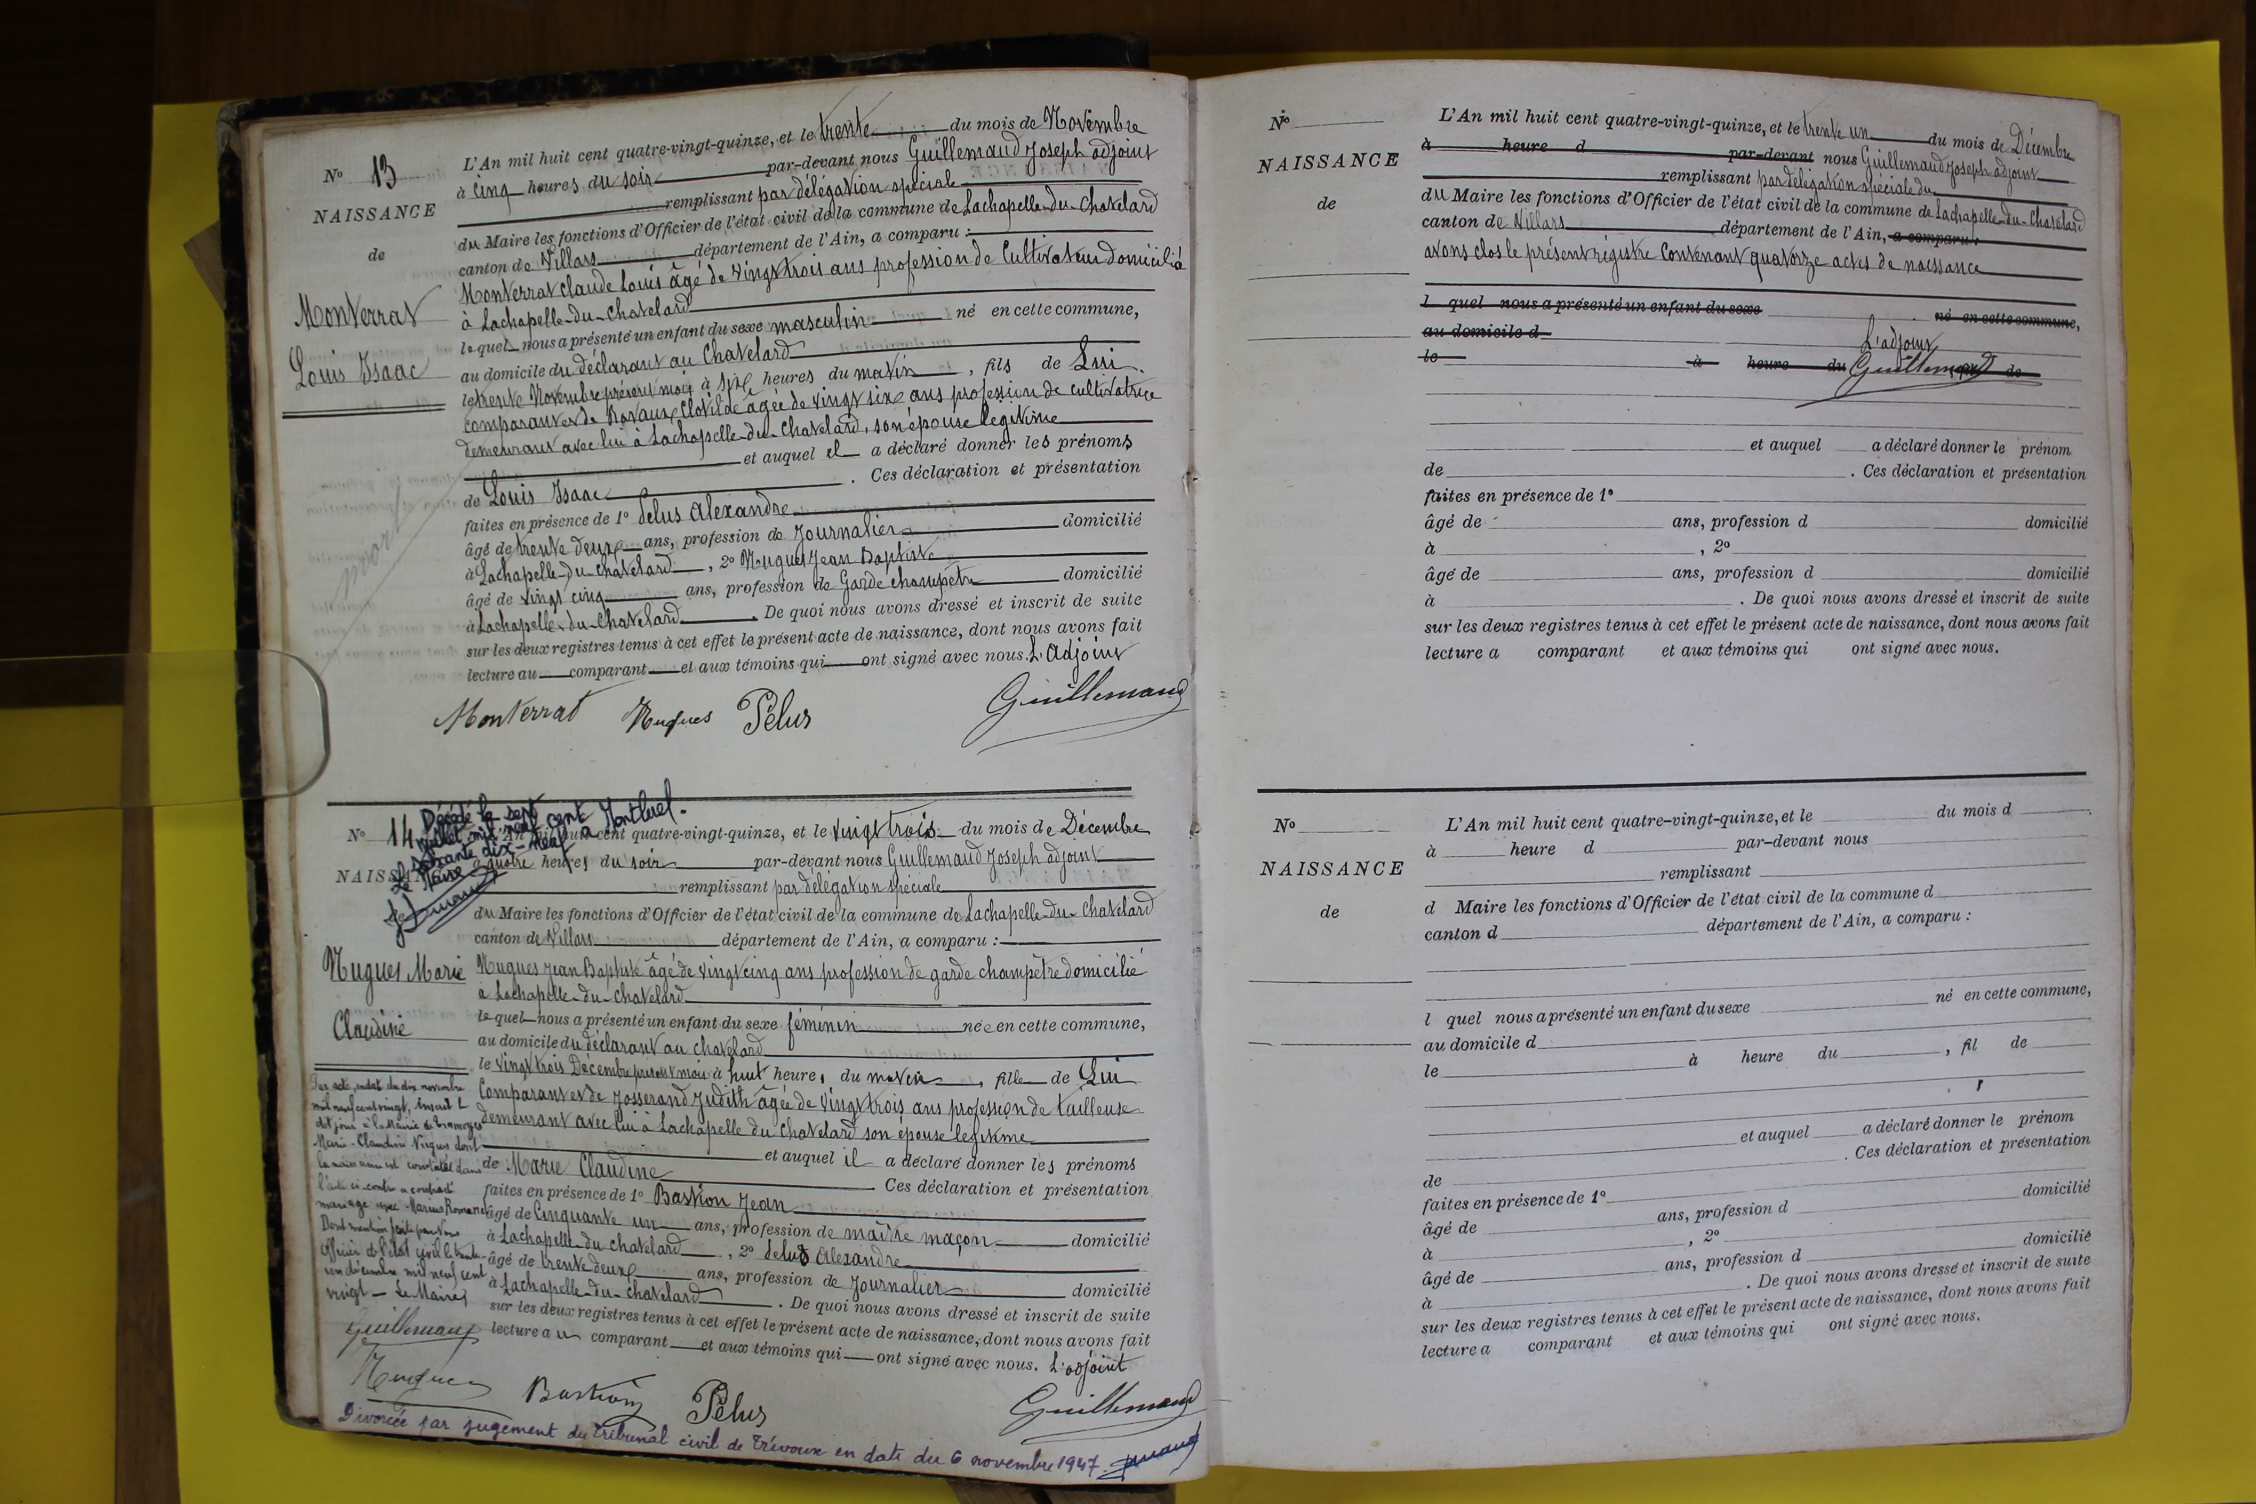 N° 13
NAISSANCE
de
Monterrat
Louis Isaac
L'An mil huit cent quatre-vingt-quinze, et le trente du mois de Novembre
à cinq heures du soir par-devant nous Guillemaud Joseph adjoint
remplissant par délégation spéciale
du Maire les fonctions d'Officier de l'état civil de la commune de Lachapelle-du-Chatelard
canton de Villars département de l'Ain, a comparu :
Monterrat Claude Louis âgé de vingt trois ans profession de Cultivateur domicilié
à Lachapelle-du-Chatelard
lequel nous a présenté un enfant du sexe masculin né en cette commune,
au domicile du déclarant au Chatelard
le trente Novembre présent mois à six heures du matin, fils de Lui
comparant et de Ravaux Clotilde âgée de vingt six ans profession de cultivatrice
demeurant avec lui à Lachapelle-du-Chatelard, son épouse légitime
et auquel il a déclaré donner les prénoms
de Louis Isaac. Ces déclaration et présentation
faites en présence de 1° Pelus Alexandre
âgé de trente deux ans, profession de Journalier domicilié
à Lachapelle-du-Chatelard, 2° Nugues Jean Baptiste
âgé de vingt cinq ans, profession de Garde champêtre domicilié
à Lachapelle-du-Chatelard. De quoi nous avons dressé et inscrit de suite
sur les deux registres tenus à cet effet le présent acte de naissance, dont nous avons fait
lecture au comparant et aux témoins qui ont signé avec nous. L'Adjoint
Monterrat Nugues Pélus Guillemaud
N° 14
Décédé le sept
juillet mil neuf cent
soixante dix-neuf à Montluel.
Le Maire
NAISSANCE
Nugues Marie
Claudine
L'An mil huit cent quatre-vingt-quinze, et le vingt trois du mois de Décembre
à quatre heures du soir par-devant nous Guillemaud Joseph adjoint
remplissant par délégation spéciale
du Maire les fonctions d'Officier de l'état civil de la commune de Lachapelle-du-Chatelard
canton de Villars département de l'Ain, a comparu :
Nugues Jean Baptiste âgé de vingt cinq ans profession de garde champêtre domicilié
à Lachapelle-du-Chatelard
lequel nous a présenté un enfant du sexe féminin née en cette commune,
au domicile du déclarant au Chatelard
le vingt trois Décembre présent mois à huit heures du matin, fille de Lui
Comparant et de Josserand Judith âgée de vingt trois ans profession de tailleuse
demeurant avec lui à Lachapelle du Chatelard son épouse légitime
et auquel il a déclaré donner les prénoms
de Marie Claudine Ces déclaration et présentation
faites en présence de 1° Bastion Jean
âgé de Cinquante un ans, profession de maître maçon domicilié
à Lachapelle-du-Chatelard, 2° Pelus Alexandre
âgé de trente deux ans, profession de Journalier domicilié
à Lachapelle-du-Chatelard. De quoi nous avons dressé et inscrit de suite
sur les deux registres tenus à cet effet le présent acte de naissance, dont nous avons fait
lecture au comparant et aux témoins qui ont signé avec nous. L'adjoint
Par acte, en date du dix novembre
mil neuf cent vingt, inscrit le
dit jour à la Mairie de
Marie-Claudine Nugues dont
la naissance est constatée dans
l'acte ci-contre a contracté
mariage avec Marius Romanet
Dont mention faite par nous
Officier de l'état civil le trente
un décembre mil neuf cent
vingt - Le Maire,
Guillemaud
Nugues Bastion Pélus Guillemaud
Divorcée par jugement du tribunal civil de Trévoux en date du 6 novembre 1947.
N°
NAISSANCE
de
L'An mil huit cent quatre-vingt-quinze, et le trente un du mois de Décembre
à heure d par-devant nous Guillemaud Joseph adjoint
remplissant par délégation spéciale du
du Maire les fonctions d'Officier de l'état civil de la commune de Lachapelle-du-Chatelard
canton de Villars département de l'Ain, a comparu :
avons clos le présent régistre contenant quatorze actes de naissance
l quel nous a présenté un enfant du sexe né en cette commune,
au domicile d
L'adjoint
le à heure du Guillemaud, fil de
et auquel a déclaré donner le prénom
de . Ces déclaration et présentation
faites en présence de 1°
âgé de ans, profession d domicilié
à , 2°
âgé de ans, profession d domicilié
à . De quoi nous avons dressé et inscrit de suite
sur les deux registres tenus à cet effet le présent acte de naissance, dont nous avons fait
lecture a comparant et aux témoins qui ont signé avec nous.
N°
NAISSANCE
de
L'An mil huit cent quatre-vingt-quinze, et le du mois d
à heure d par-devant nous
remplissant
d Maire les fonctions d'Officier de l'état civil de la commune d
canton d département de l'Ain, a comparu :
l quel nous a présenté un enfant du sexe né en cette commune,
au domicile d
le à heure du , fil de
et auquel a déclaré donner le prénom
de . Ces déclaration et présentation
faites en présence de 1°
âgé de ans, profession d domicilié
à , 2°
âgé de ans, profession d domicilié
à . De quoi nous avons dressé et inscrit de suite
sur les deux registres tenus à cet effet le présent acte de naissance, dont nous avons fait
lecture a comparant et aux témoins qui ont signé avec nous.